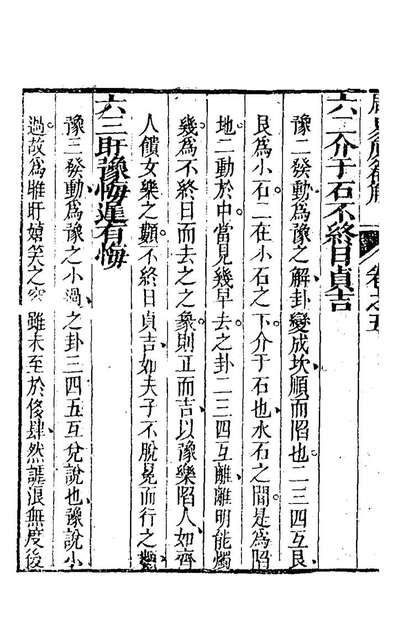 六二介于石不終日貞吉
豫二發動為豫之解卦變成坎順而陷也二三四互艮
艮為小石二在小石之下介于石也水石之間是為陷
地二動於中當見幾早去之卦二三四互離離明能燭
幾為不終日而去之之象則正而吉以豫樂陷人如齊
人饋女樂之類不終日貞吉如夫子不脫冕而行之
六三盱豫悔遲有悔
豫三發動為豫之小過之卦三四五互兌說也豫說小
過故為睢盱嬉笑之 雖未至於侈肆然謔浪無度後
卷之五